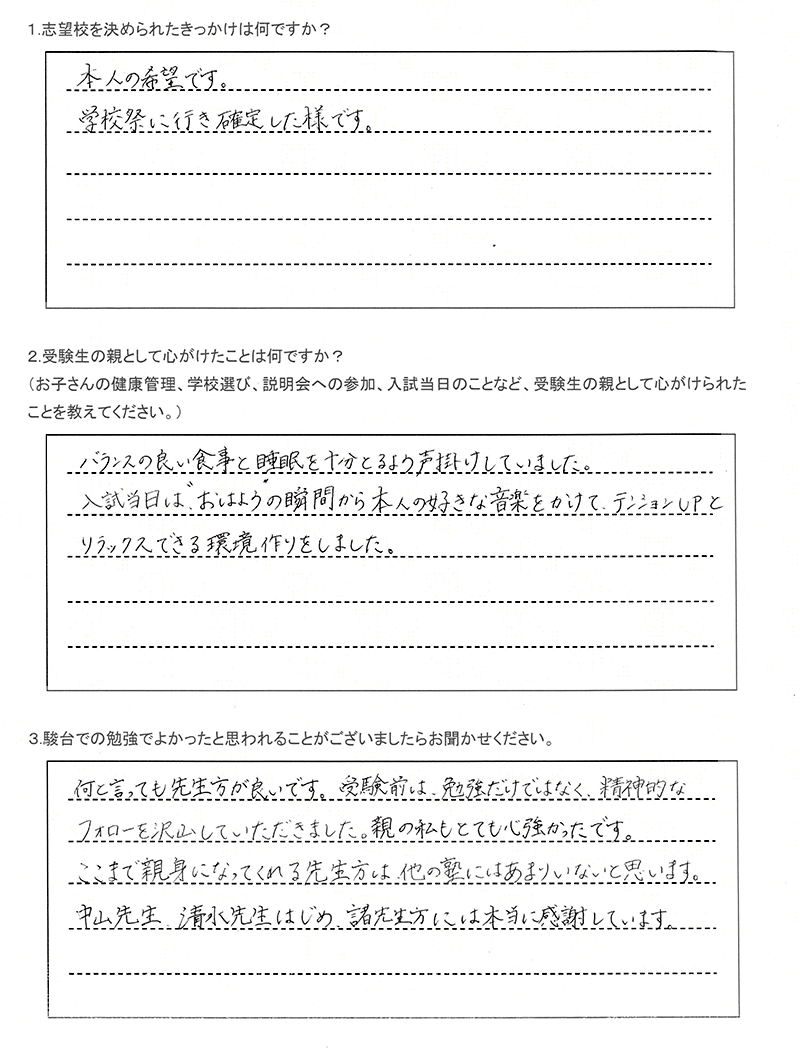 1.志望校を決められたきっかけは何ですか？
本人の希望です。
学校祭に行き確定した様です。
2.受験生の親として心がけたことは何ですか？
（お子さんの健康管理、学校選び、説明会への参加、入試当日のことなど、受験生の親として心がけられた
ことを教えてください。）
バランスの良い食事と睡眠を十分とるよう声掛けしていました。
入試当日は、おはようの瞬間から本人の好きな音楽をかけて、テンションUPと
リラックスできる環境作りをしました。
3.駿台での勉強でよかったと思われることがございましたらお聞かせください。
何と言っても先生方が良いです。受験前は、勉強だけではなく、精神的な
フォローを沢山していただきました。親の私もとても心強かったです。
ここまで親身になってくれる先生方は、他の塾にはあまりいないと思います。
中山先生、清水先生はじめ、諸先生方には本当に感謝しています。